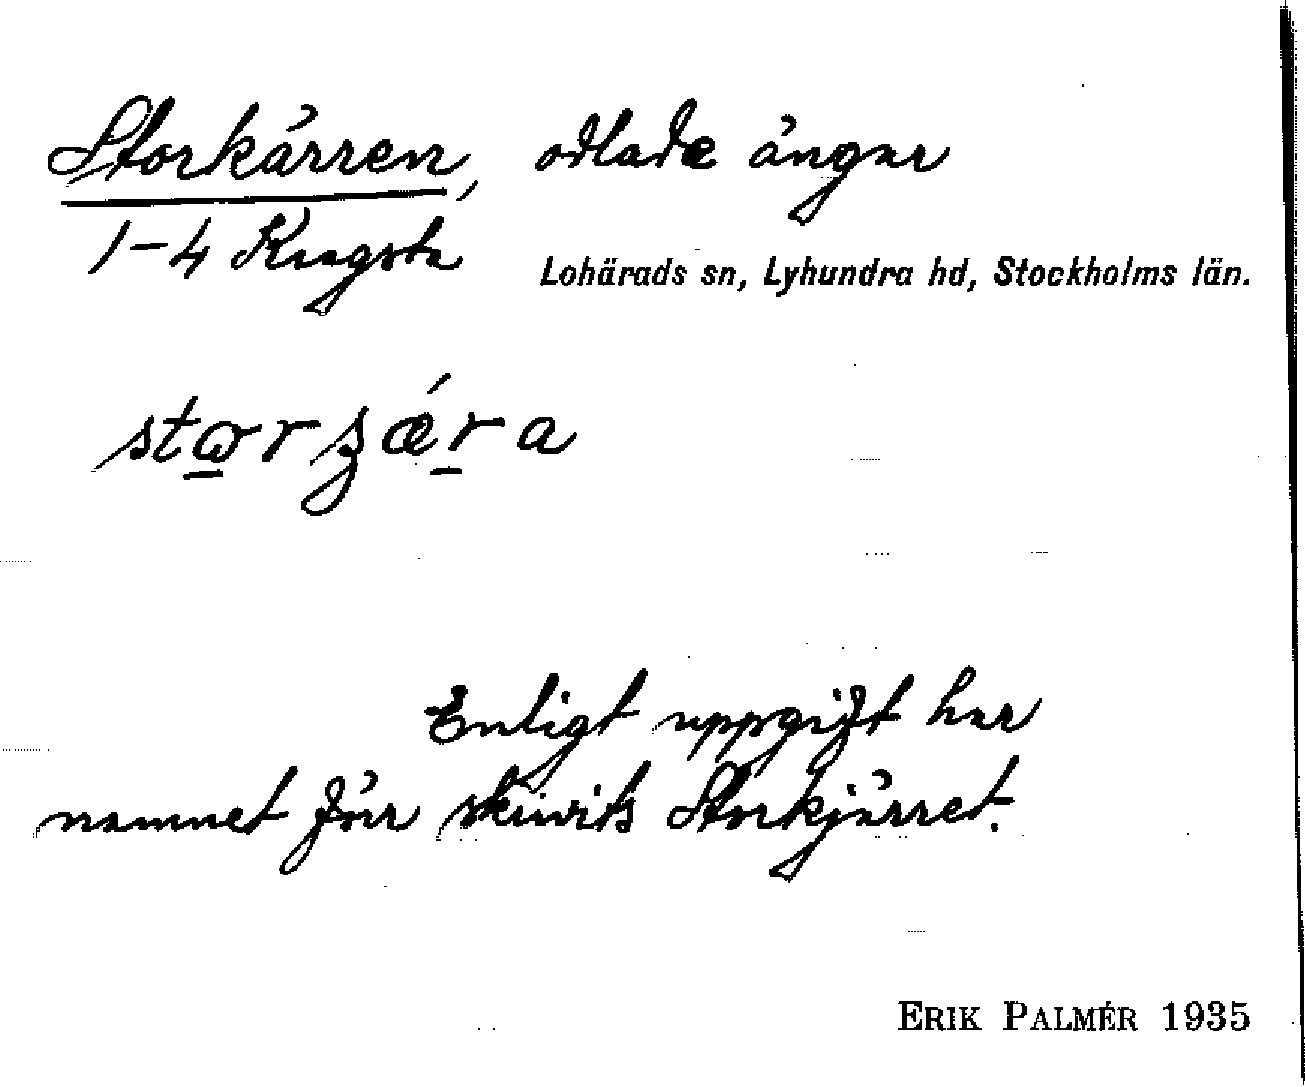 Storkärren, odlade ängar
1-4 Kragsta
Lohärads sn, Lyhundra hd, Stockholms län.
Enligt uppgift har
namnet förr skrivits Storkjärret.
ERIK PALMÉR 1935